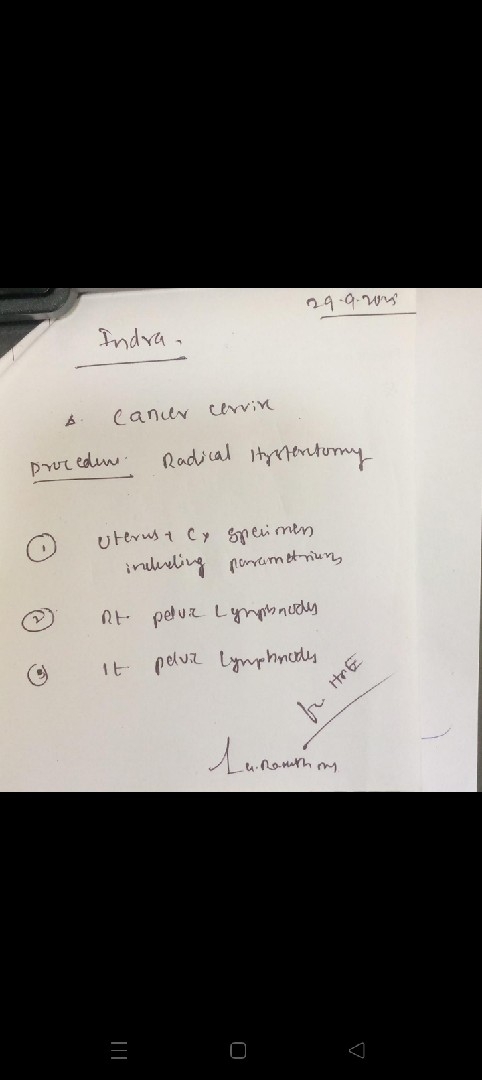 29.9.2025
Indra.
Δ. Cancer cervix
Procedure. Radical Hysterectomy
① Uterus + Cx specimen
including parametrium
② Rt pelvic Lymphnodes
③ lt pelvic Lymphnodes
for HPE